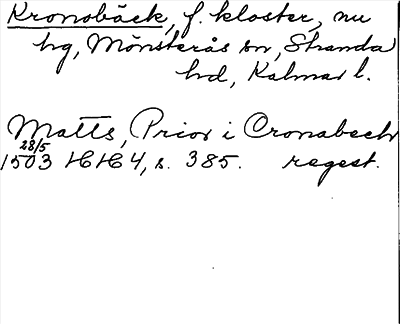 Kronobäck, f. kloster, nu
hg, Mönsterås sn, Stranda
hd, Kalmar l.
Matts, Prior i Cronabech
28/5
1503 HH 4, s. 385. regest.